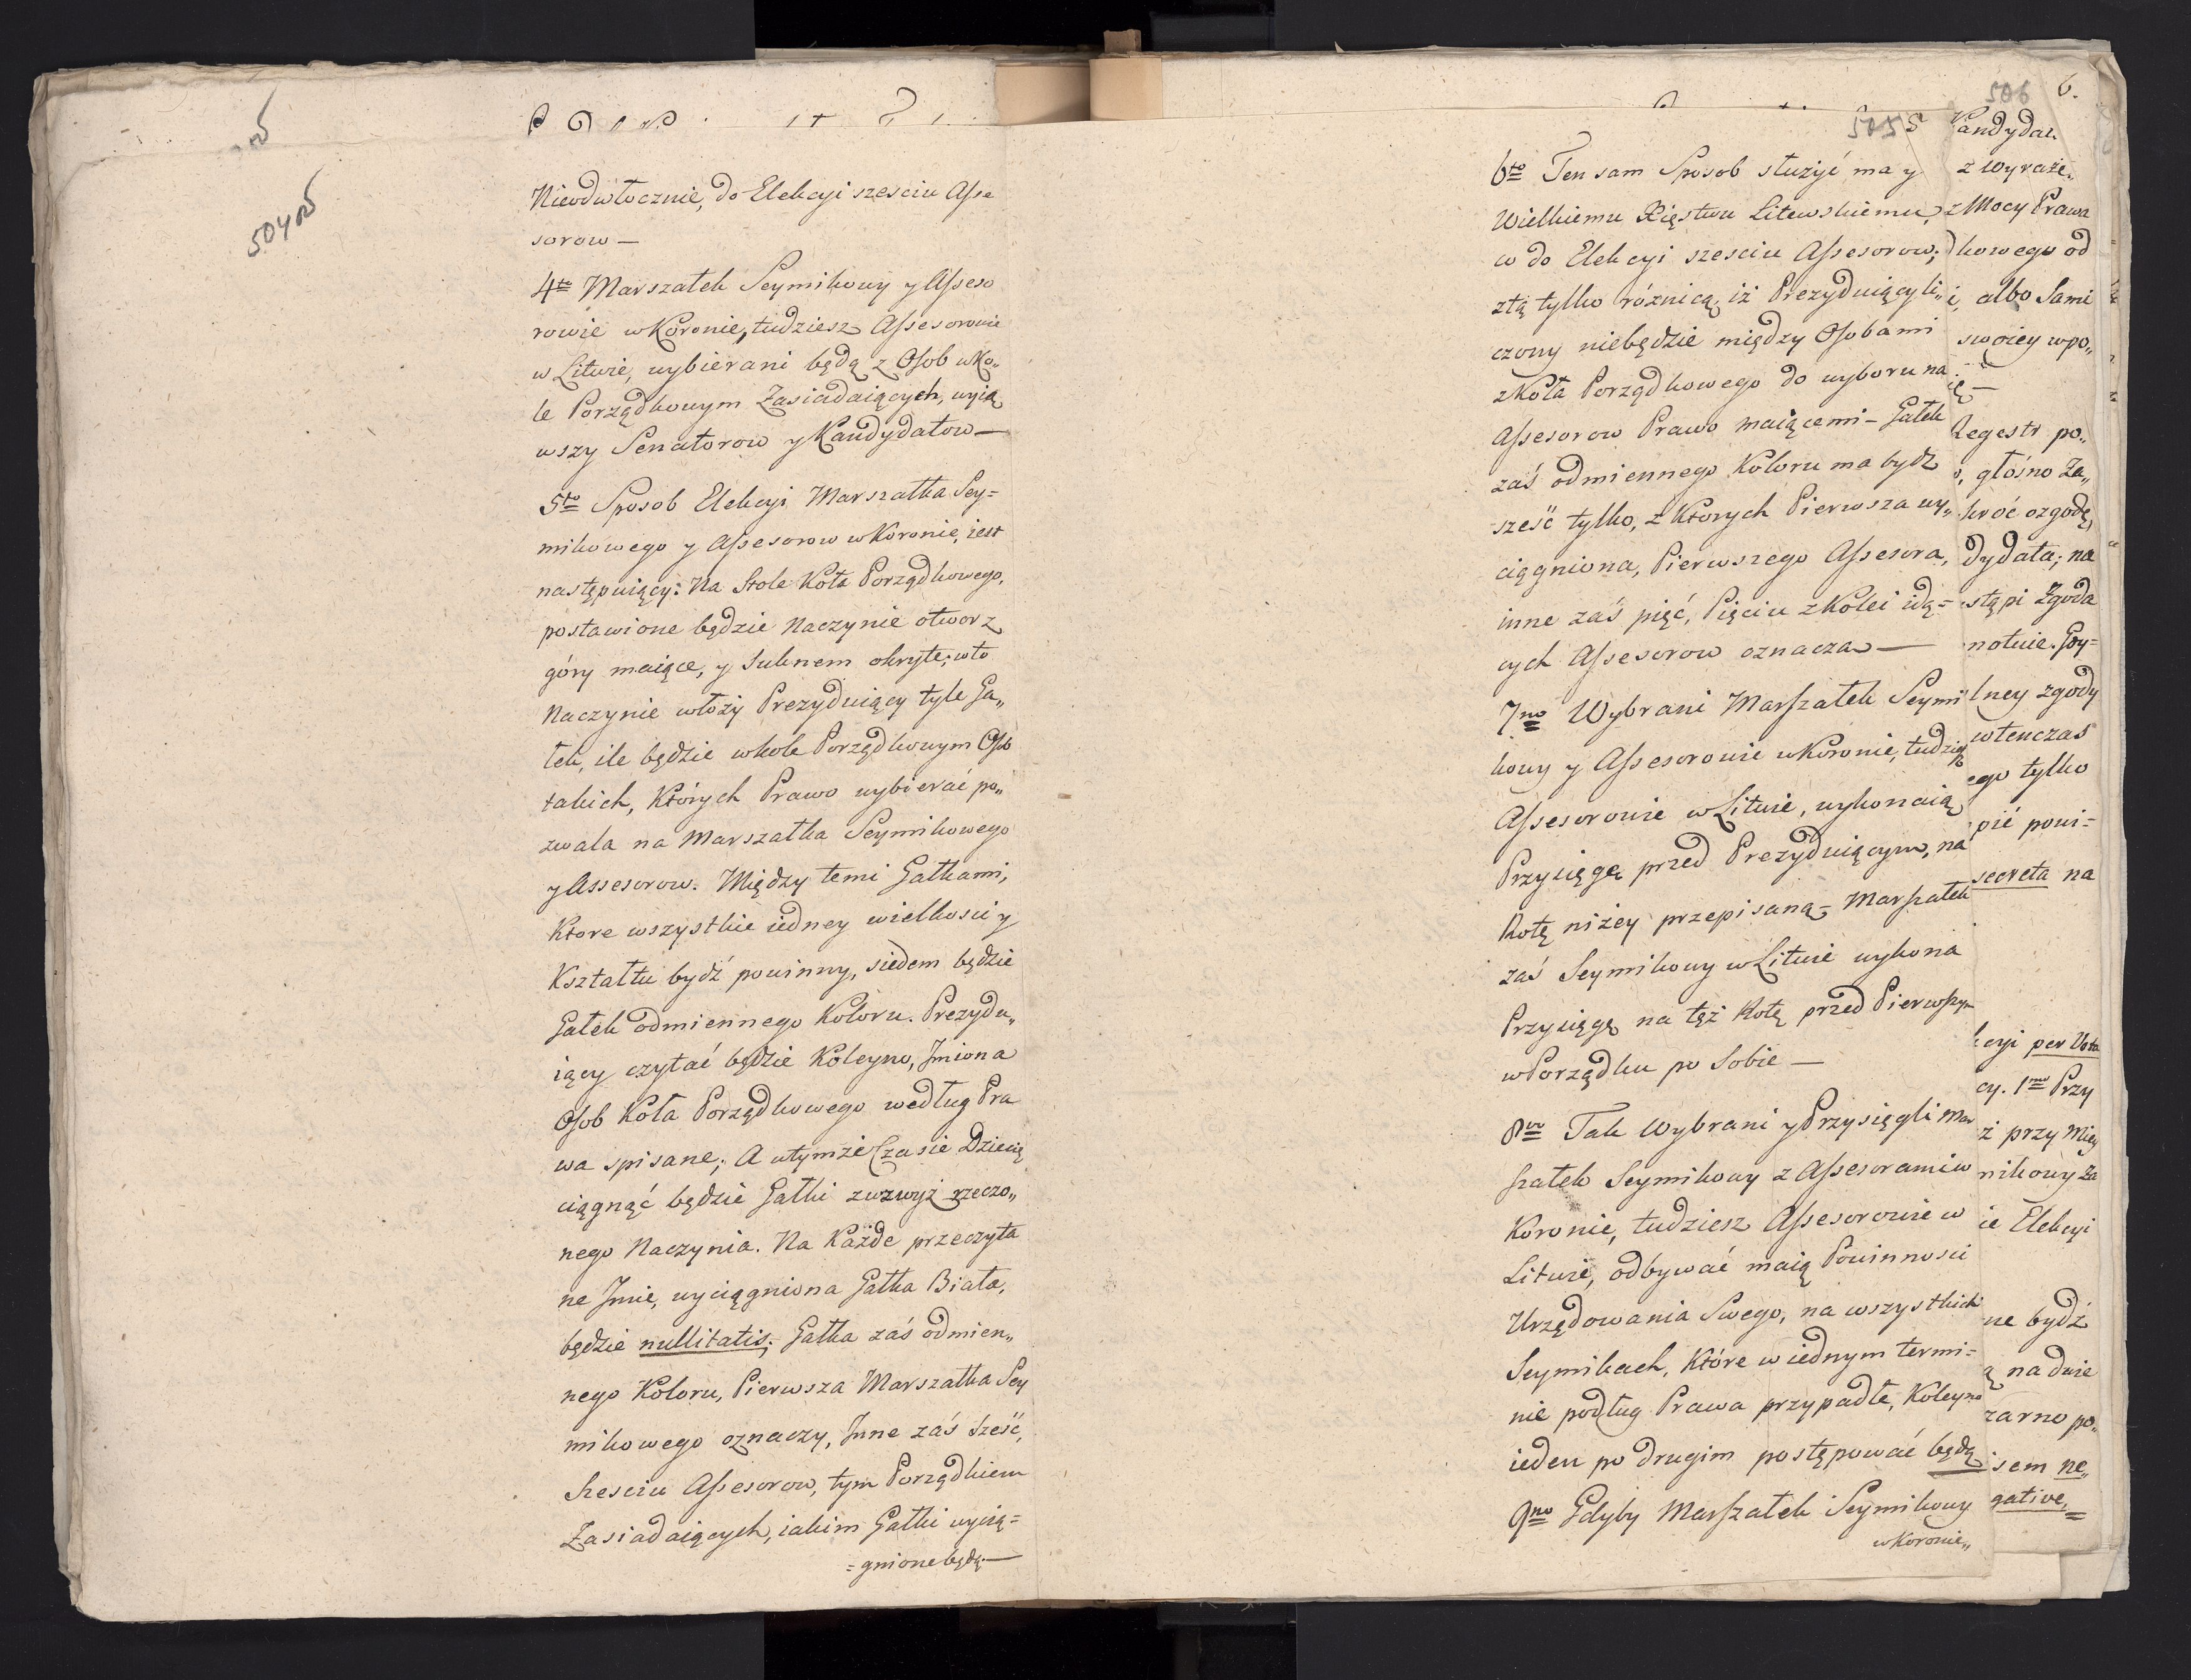 504
Nieodwłocznie, do Elekcyi szesciu Asse
sorow —
4to Marszałek Seymikowy y Asseso
rowie w Koronie, tudziesz Assesorowie
w Litwie, wybierani będą z Osob w Ko„
le Porządkowym Zasiadaiących, wyią
wszy Senatorow y Kandydatow —
5to Sposob Elekcyi Marszałka Sey=
mikowego y Assesorow w Koronie, iest
następuiący: Na Stole Koła Porządkowego,
postawione będzie Naczynie otwor z
góry maiące, y Suknem okryte; w to
Naczynie włoży Prezyduiący tyle Ga„
łek, ile będzie w kole Porządkowym Osob
takich, Których Prawo wybierać po„
zwala na Marszałka Seymikowego
y Assesorow. Między temi Gałkami,
Ktore wszystkie iedney wielkosci y
Kształtu bydź powinny, siedem będzie
Gałek odmiennego Koloru. Prezydu„
iący czytać będzie Koleyno, Jmiona
Osob Koła Porządkowego według Pra
wa spisane; A w tymże Czasie Dziecię
ciągnąć będzie Gałki z wzwyż rzeczo„
nego Naczynia. Na Każde przeczyta
ne Jmie, wyciągniona Gałka Biała,
będzie nullitatis; Gałka zaś odmien„
nego Koloru, Pierwsza Marszałka Sey
mikowego oznaczy, Jnne zaś sześć,
Szesciu Assesorow, tym Porządkiem
Zasiadaiących, iakim Gałki wycią=
=gnione będą. —
505 5
6to Ten sam Sposob służyć ma y
Wielkiemu Xięstwu Litewskiemu,
w do Elekcyi szesciu Assesorow;
z tą tylko różnicą, iż Prezyduiący li„
czony niebędzie między Osobami
z Koła Porządkowego do wyboru na
Assesorow Prawo maiącemi – Gałek
zaś odmiennego Koloru ma bydź
sześć tylko, z Ktorych Pierwsza wy„
ciągniona, Pierwszego Assesora,
inne zaś pięć, Pięciu z Kolei idą=
cych Assesorow oznacza —
7mo Wybrani Marszałek Seymi
kowy y Assesorowie w Koronie, tudzież
Assesorowie w Litwie, wykonaią
Przysięgę przed Prezyduiącym, na
Rotę niżey przepisaną – Marszałek
zaś Seymikowy w Litwie wykona
Przysięgę na tęż Rotę przed Pierwszym
w Porządku po Sobie —
8vo Tak Wybrani y Przysięgli Mar
szałek Seymikowy z Assesorami w
Koronie, tudziesz Assesorowie w
Litwie, odbywać maią Powinnosci
Urzędowania Swego, na wszystkich
Seymikach, Które w iednym termi=
nie podług Prawa przypadłe, Koleyno
ieden po drugim postępować będą
9no Gdyby Marszałek Seymikowy
w Koronie„
506 6.
Kandydat
z Wyraże„
z Mocy Prawa
kowego od
i, albo Sami
swoiey w po„
Regestr po„
głośno Za„
kroć o zgodę,
dydata; na
stąpi Zgoda
notuie. Gdy=
lney zgody
wtenczas
ego tylko
pić powi=
secreta na
kcyi per Vota
cy. 1mo Przy
ż przy Miey
nikowy Za
ie Elekcyi
ne bydź
ą na dwie
zarno po„
sem ne„
gative,=